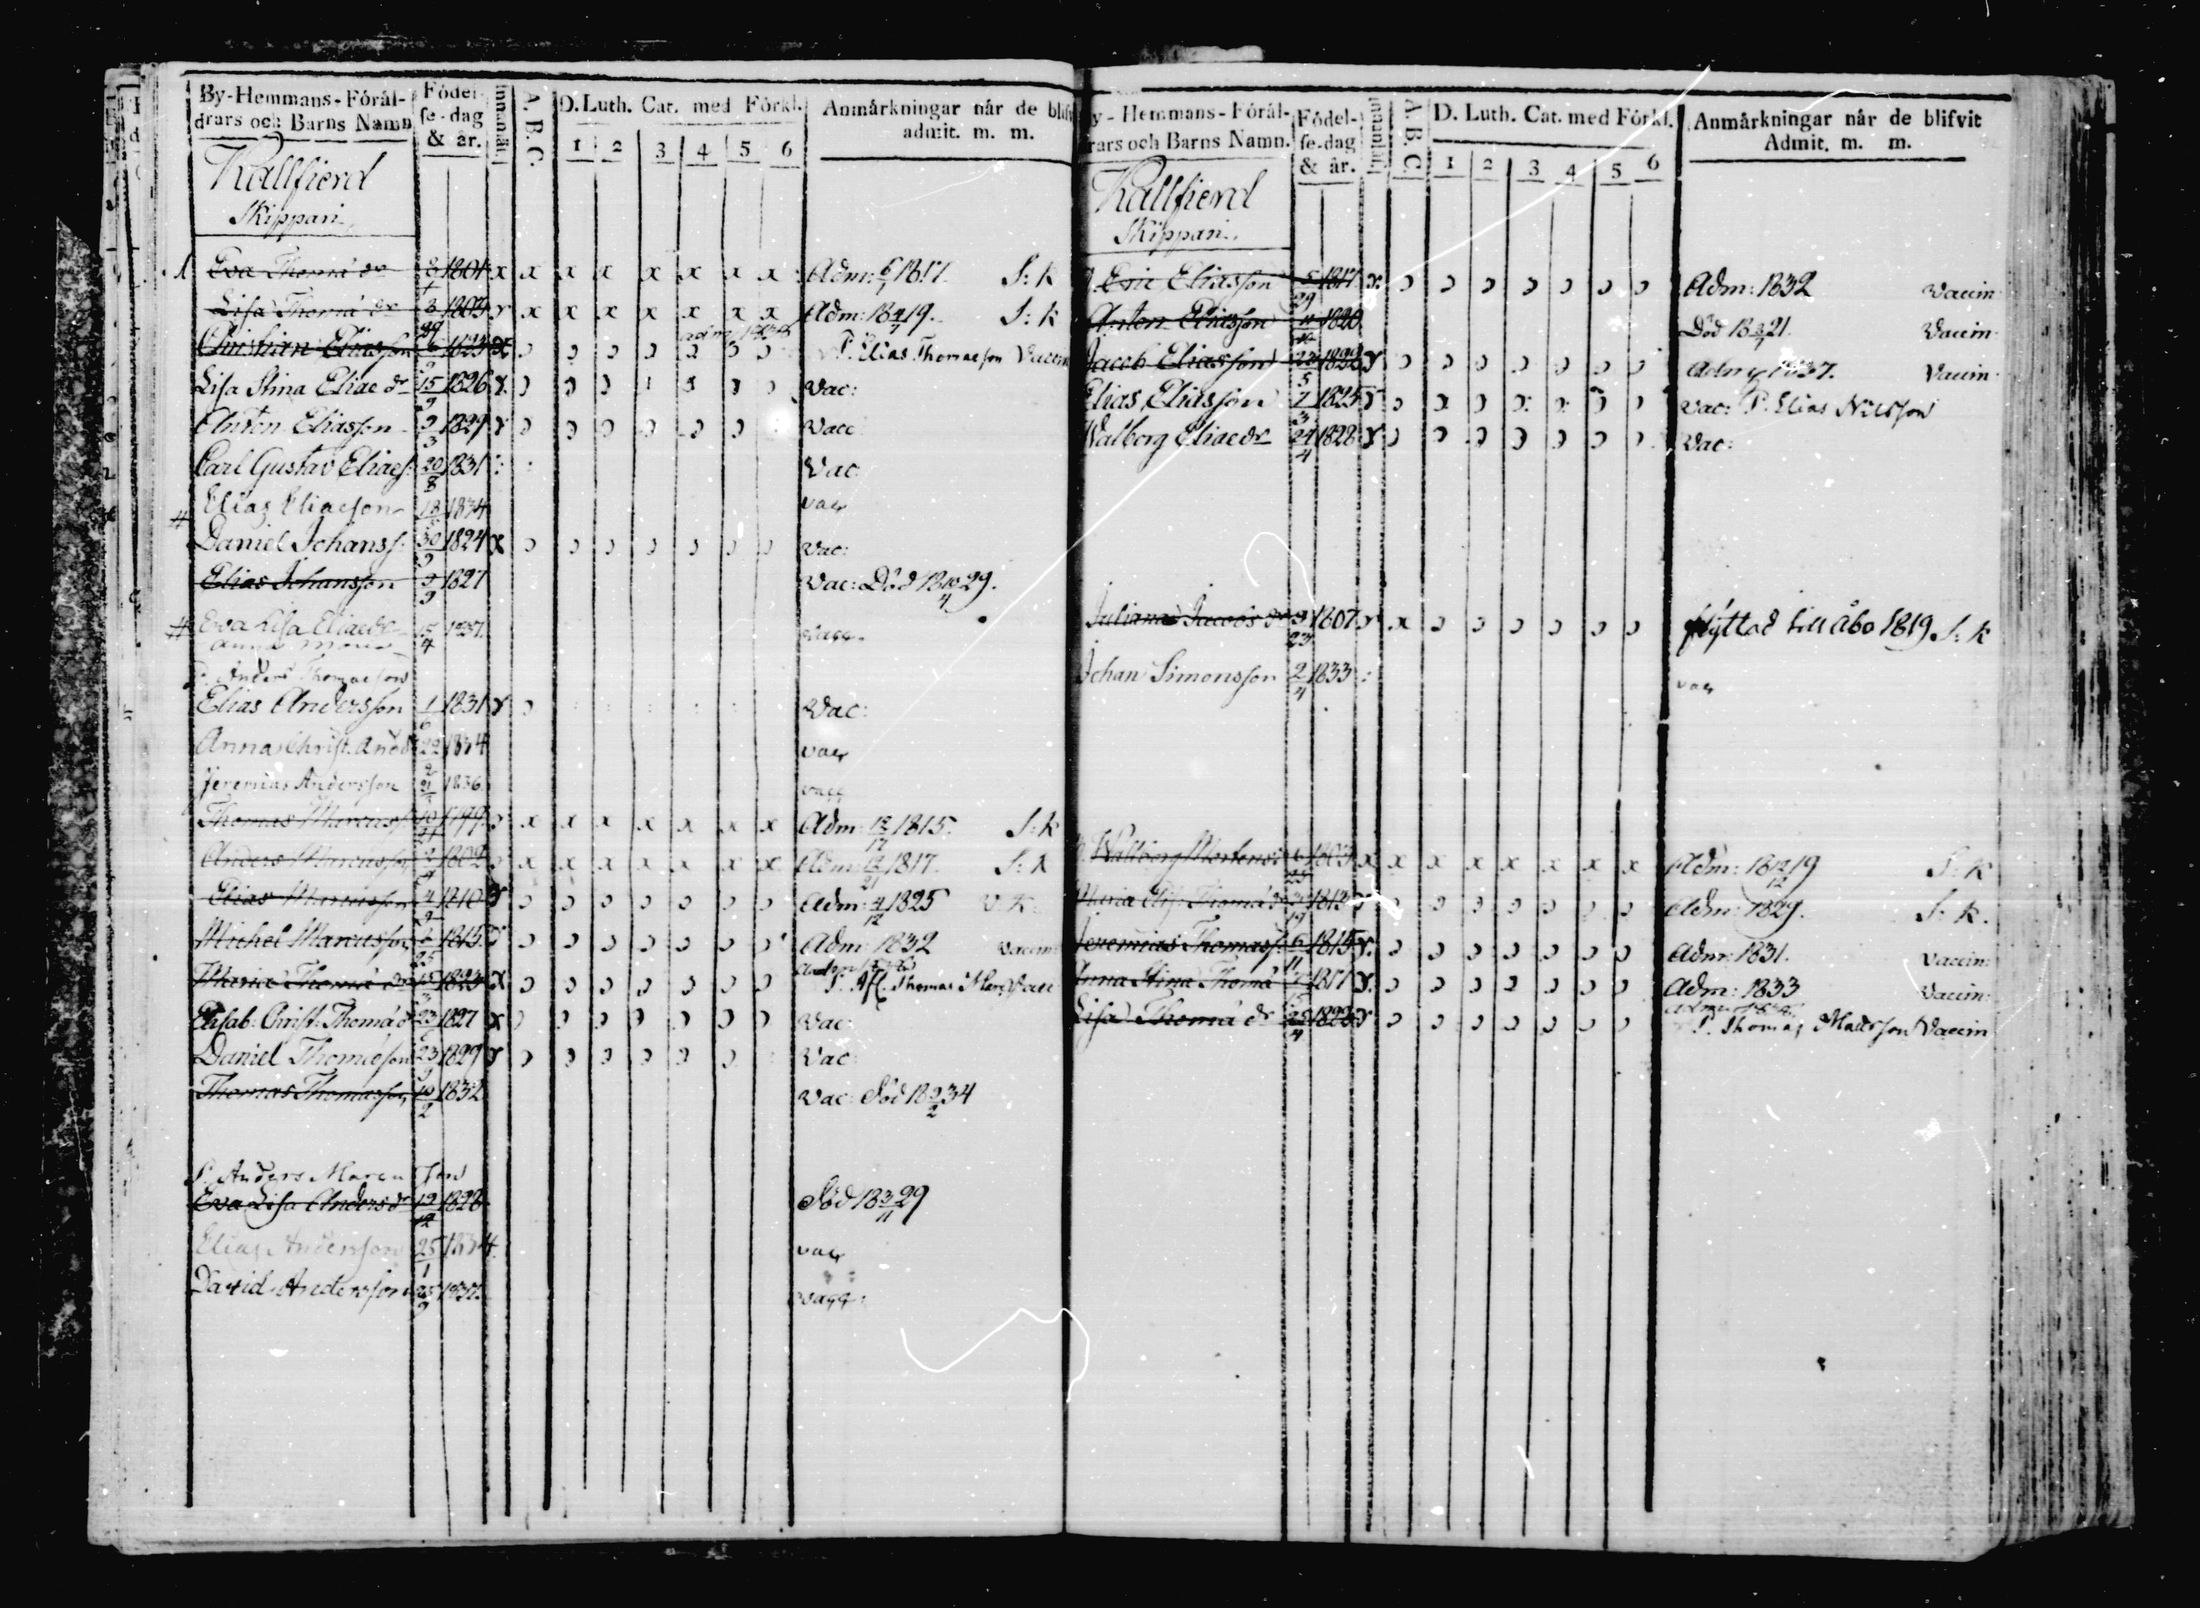 By-Hemmans-Föräl-
drars och Barns Namn
Födel-
se-dag
& år.
Innanläs.
A.B.C.
D. Luth. Cat. med Förkl.
1 2 3 4 5 6
Anmärkningar når de blifv
admit. m. m.
Kallfierd
Skippari
1 Eva Thomæ dr 3/1 1801 x x x x x x x x Adm: 6/1 1817. S: K
Lisa Thomæ dr 1803 x x x x x x x Adm: 18 4/7 19. S: K
Christian Eliasson 1823 P. Elias Thomasson Vaccin
Lisa Stina Eliæ dr 15/9 1826 Vac:
Anton Eliasson 9/3 1829 Vacc
Carl Gustav Eliæs: 20/8 1831 Vac
Elias Eliæson 18 1834 vac
# Daniel Johanss: 30/9 1824 x Vac:
Elias Johansson 9/9 1827 Vac: Död 18 10/4 29.
# Eva Lisa Eliædr 15/4 1837 vacc.
P. Anders Thomæson
Elias Andersson 1/6 1831 Vac:
Anna Christ. And dr 22/2 1834 vac
Jeremias Andersson 21 1836 vacc
Thomas Marcuss: 10 1799 x x x x x x x Adm: 1815. S: K
Anders Marcusson 1802 x x x x x x x Adm: 1817. S: K
Elias Marcusson 4/9 1810 Adm: 4/12 1825 V. K.
Michel Marcusson 1815 Adm 1832 Vaccin
Maria Thomæ dr 15/3 1823 P. Afl. Thomas Marc. Vacc
Elisab: Christ: Thomæ dr 23 1827 x Vac:
Daniel Thomæson 23/9 1829 Vac
Thomas Thomasson 10/2 1832 Vac: Död 18 9/2 34
P. Anders Marcusson
Eva Lisa Anders dr 12/12 1828 Död 18 3/11 29
Elias Andersson 25/1 1834 vac
David Andersson 25/9 1837 vacc:
y-Hemmans-Förål-
rars och Barns Namn.
Födel-
se-dag
& år.
Innanläs
A.B.C.
D. Luth. Cat. med Förkl.
1 2 3 4 5 6
Anmärkningar når de blifvit
Admit. m. m.
Kallfierd
Skippari.
Eric Eliasson 5/29 1817 Adm: 1832 Vaccin
Anton Eliasson 1820 Död 18 3/7 21. Vaccin
Jacob Eliasson 23/5 1822 Adm 1837. Vaccin
Elias Eliasson 7/3 1825 vac: P. Elias Nilsson
Walborg Eliædr 24/4 1828 Vac:
Juliana Jacobs dr 9/23 1807 x flyttad till Åbo 1819 S: K
Johan Simonsson 2/4 1833 vac
Walborg Mårtens dr 1803 x x x x x x x x Adm: 18 12/12 19 S: K
Maria Elis: Thomæ dr 1812 Adm: 1829. S: K.
Jeremias Thomass: 6/11 1815 Adm: 1831. Vaccin:
Anna Stina Thomæ 1817 Adm: 1833 Vaccin:
Lisa Thomæ dr 25/4 1822 P. Thomas Matsson Vaccin